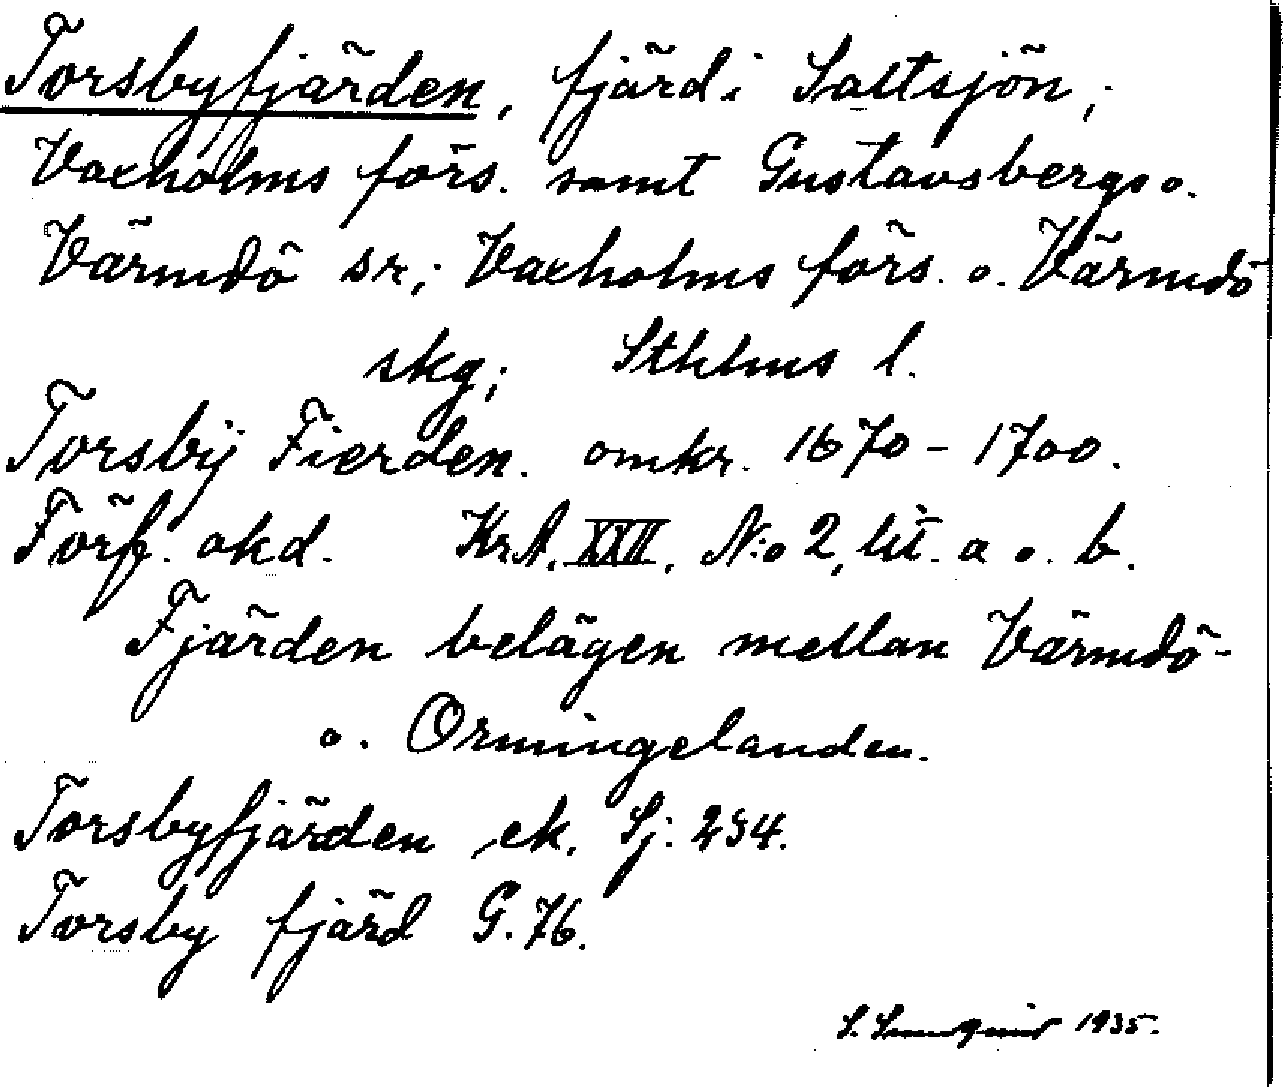 Torsbyfjärden, fjärd i Saltsjön,
Vaxholms förs. samt Gustavsbergs o.
Värmdö sr; Vaxholms förs. o. Värmdö
skg; Sthlms l.
Torsbÿ Fierden. omkr. 1670-1700.
Förf. okd. KrA. XXII. N:o 2, lit. a o. b.
Fjärden belägen mellan Värmdö-
o. Ormingelanden.
Torsbyfjärden ek. Sj: 234.
Torsby fjärd G. 76.
S. 1935.